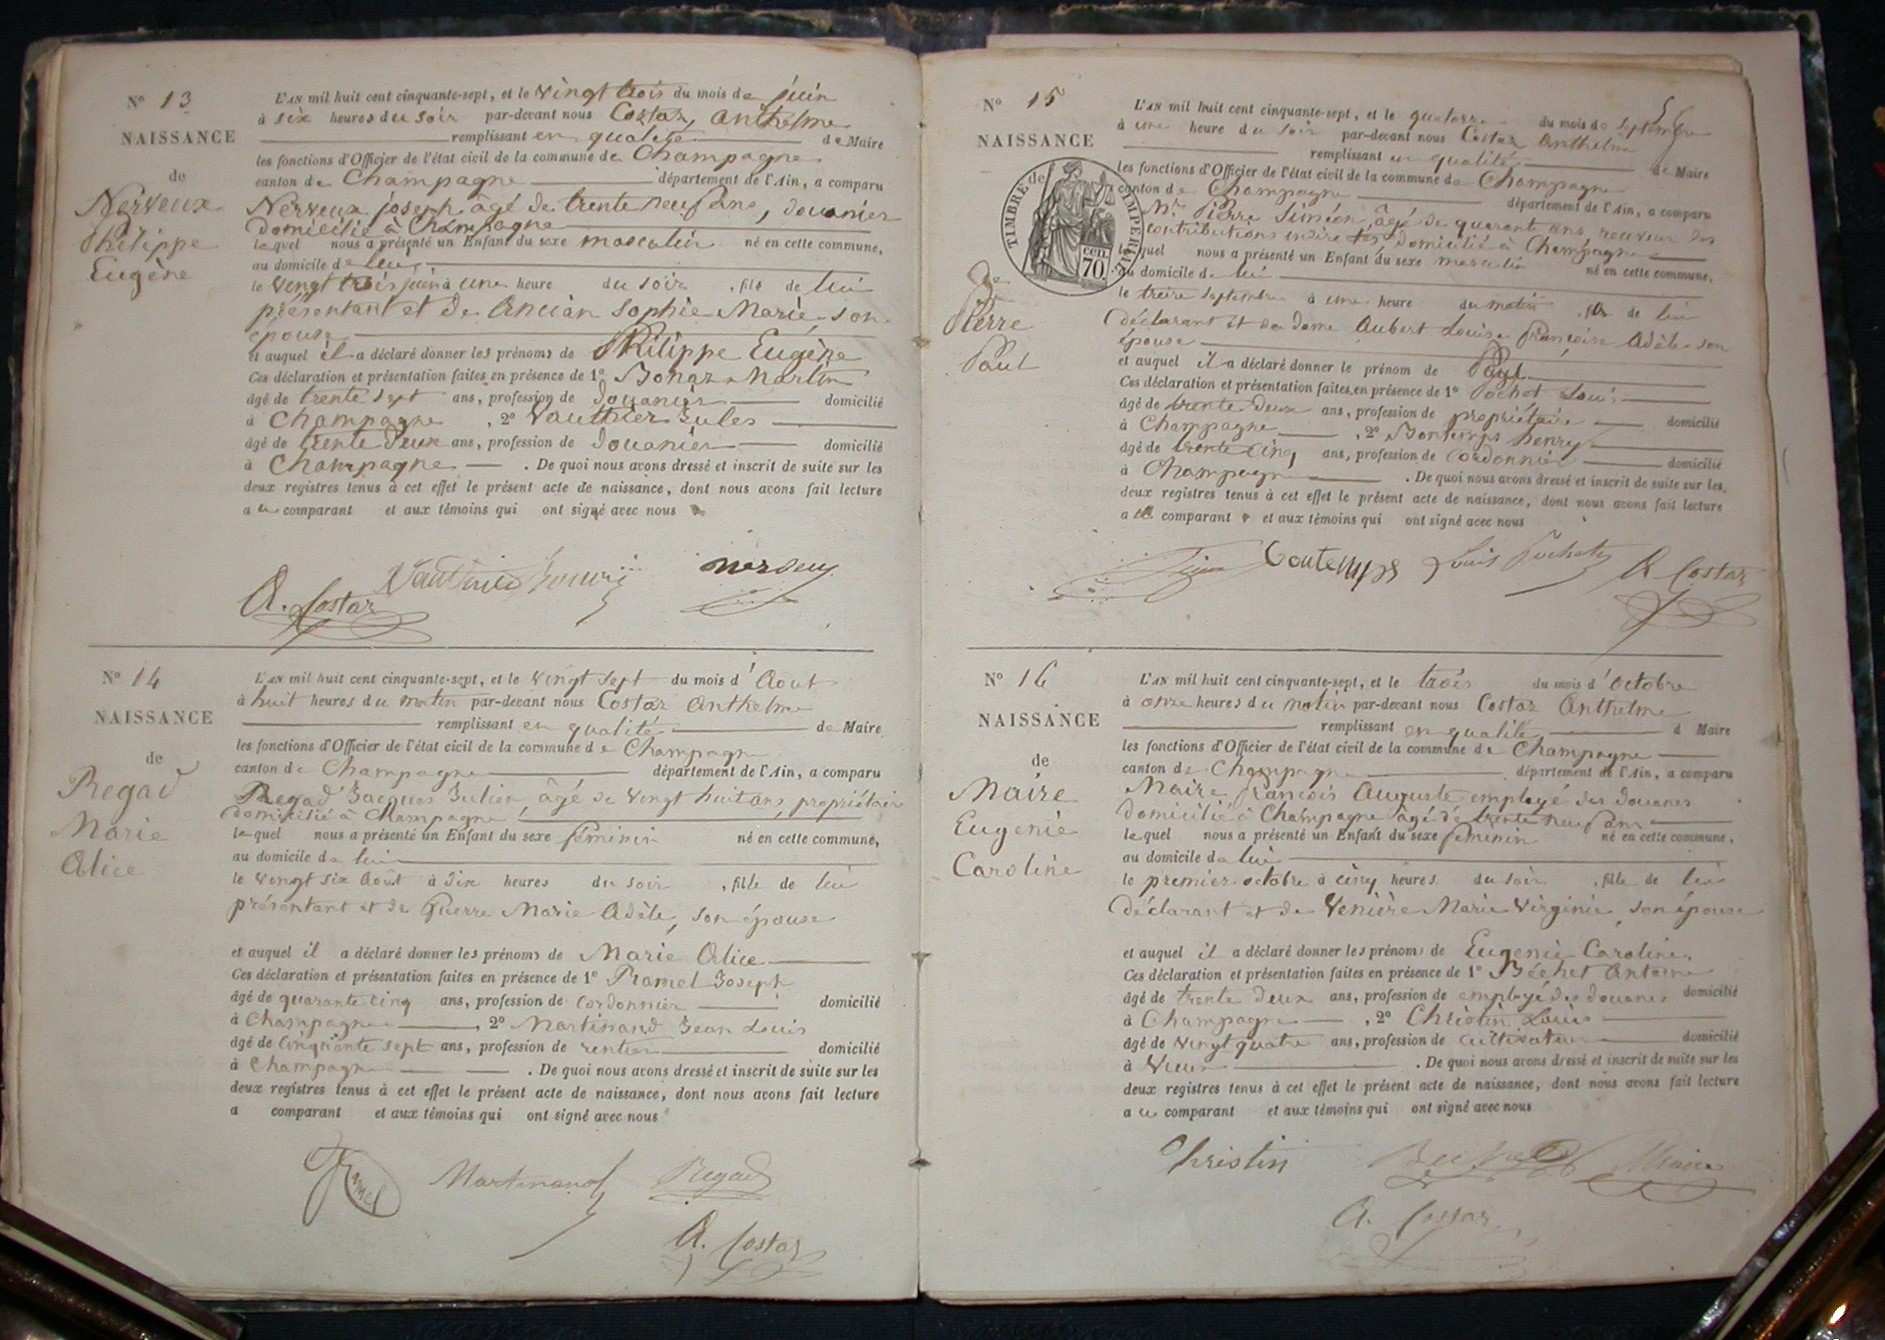 N° 13
NAISSANCE
de
Nerveux
Philippe
Eugène
L'AN mil huit cent cinquante-sept, et le vingt trois du mois de juin
à six heures du soir par-devant nous Costaz, Anthelme
remplissant en qualité de Maire
les fonctions d'Officier de l'état civil de la commune de Champagne
canton de Champagne département de l'Ain, a comparu
Nerveux joseph âgé de trente neuf ans, douanier
domicilié à Champagne
lequel nous a présenté un Enfant du sexe masculin né en cette commune,
au domicile de lui,
le vingt trois juin à une heure du soir, fils de lui
présentant et de Ancian Sophie Marie son
épouse
et auquel il a déclaré donner les prénoms de Philippe Eugène
Ces déclaration et présentation faites en présence de 1° Bonaz Martin
âgé de trente sept ans, profession de douanier domicilié
à Champagne, 2° Vauthier Jules
âgé de trente deux ans, profession de douanier domicilié
à Champagne. De quoi nous avons dressé et inscrit de suite sur les
deux registres tenus à cet effet le présent acte de naissance, dont nous avons fait lecture
a u comparant et aux témoins qui ont signé avec nous
A. Costaz
N° 14
NAISSANCE
de
Regad
Marie
Alice
L'AN mil huit cent cinquante-sept, et le vingt sept du mois d'Aout
à huit heures du matin par-devant nous Costaz Anthelme
remplissant en qualité de Maire
les fonctions d'Officier de l'état civil de la commune de Champagne
canton de Champagne département de l'Ain, a comparu
Regad Jacques Julien âgé de vingt huit ans, propriétaire
domicilié à Champagne,
lequel nous a présenté un Enfant du sexe féminin né en cette commune,
au domicile de lui
le vingt six Août à dix heures du soir, fille de lui
présentant et de Guerre Marie Adèle, son épouse
et auquel il a déclaré donner les prénoms de Marie Alice
Ces déclaration et présentation faites en présence de 1° Ramel Joseph
âgé de quarante cinq ans, profession de cordonnier domicilié
à Champagne, 2° Martinand Jean Louis
âgé de cinquante sept ans, profession de rentier domicilié
à Champagne. De quoi nous avons dressé et inscrit de suite sur les
deux registres tenus à cet effet le présent acte de naissance, dont nous avons fait lecture
a comparant et aux témoins qui ont signé avec nous
Martinand Regad
A. Costaz
N° 15
NAISSANCE
TIMBRE IMPÉRIAL
CEN.
70.
de
Pierre
Paul
L'AN mil huit cent cinquante-sept, et le quatorze du mois de septembre
à une heure du soir par-devant nous Costaz Anthelme
remplissant en qualité de Maire
les fonctions d'Officier de l'état civil de la commune de Champagne
canton de Champagne département de l'Ain, a comparu
Mr. Pierre Siméon, âgé de quarante ans, receveur des
contributions domicilié à Champagne
lequel nous a présenté un Enfant du sexe masculin né en cette commune,
au domicile de lui
le treize septembre à une heure du matin, fils de lui
déclarant et de dame Aubert Louise Françoise Adèle son
épouse
et auquel il a déclaré donner le prénom de Paul
Ces déclaration et présentation faites en présence de 1° Pochet Louis
âgé de trente deux ans, profession de propriétaire domicilié
à Champagne, 2° Bontemps henry
âgé de trente cinq ans, profession de cordonnier domicilié
à Champagne. De quoi nous avons dressé et inscrit de suite sur les
deux registres tenus à cet effet le présent acte de naissance, dont nous avons fait lecture
a u comparant et aux témoins qui ont signé avec nous
Bontemps Louis Pochet A Costaz
N° 16
NAISSANCE
de
Maire
Eugenie
Caroline
L'AN mil huit cent cinquante-sept, et le trois du mois d'octobre
à onze heures du matin par-devant nous Costaz Anthelme
remplissant en qualité d Maire
les fonctions d'Officier de l'état civil de la commune de Champagne
canton de Champagne département de l'Ain, a comparu
Maire François Auguste employé des douanes
domicilié à Champagne âgé de trente neuf ans
lequel nous a présenté un Enfant du sexe féminin né en cette commune,
au domicile de lui
le premier octobre à cinq heures du soir, fille de lui
déclarant et de Venière Marie Virginie son épouse
et auquel il a déclaré donner les prénoms de Eugenie Caroline
Ces déclaration et présentation faites en présence de 1° Béchet Antoine
âgé de trente deux ans, profession de employé des douanes domicilié
à Champagne, 2° Christin Louis
âgé de vingt quatre ans, profession de cultivateur domicilié
à Vieu. De quoi nous avons dressé et inscrit de suite sur les
deux registres tenus à cet effet le présent acte de naissance, dont nous avons fait lecture
a u comparant et aux témoins qui ont signé avec nous
Christin Maire
A. Costaz